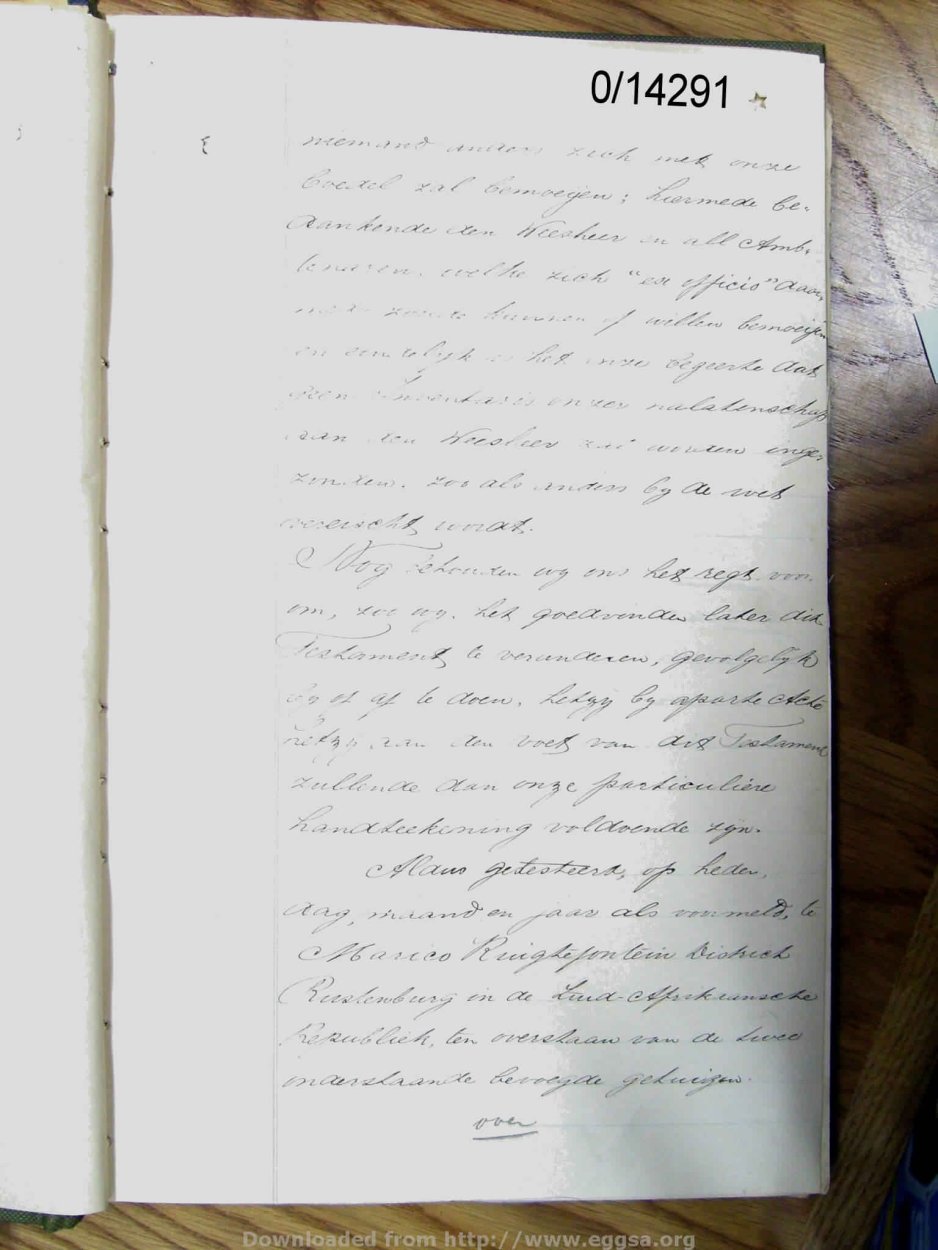 0/14291
niemand anders zich met onze
boedel zal bemoeijen; hiermede be-
dankende den Weesheer en all Amb-
tenaren welke zich "ex officio" daar
mede zoude kunnen of willen bemoeijen
en eindelijk is het onze begeerte dat
geen inventaris onzer nalatenschap
aan den Weesheer zal worden inge-
zonden, zoo als anders by de wet
vereischt wordt.
Nog behouden wy ons het regt voor
om, zoo wy het goedvinden later dit
Testament te veranderen, gevolgelyk
by of af te doen, hetzy by aparte Acte
hetzy aan den voet van dit Testament
zullende dan onze particuliere
handteekening voldoende zyn.
Aldus getesteerd, op heden,
dag, maand en jaar als voormeld, te
Marico Ruigtefontein District
Rustenburg in de Zuid-Afrikaansche
Republiek, ten overstaan van de twee
onderstaande bevoegde getuigen.
over
Downloaded from http://www.eggsa.org